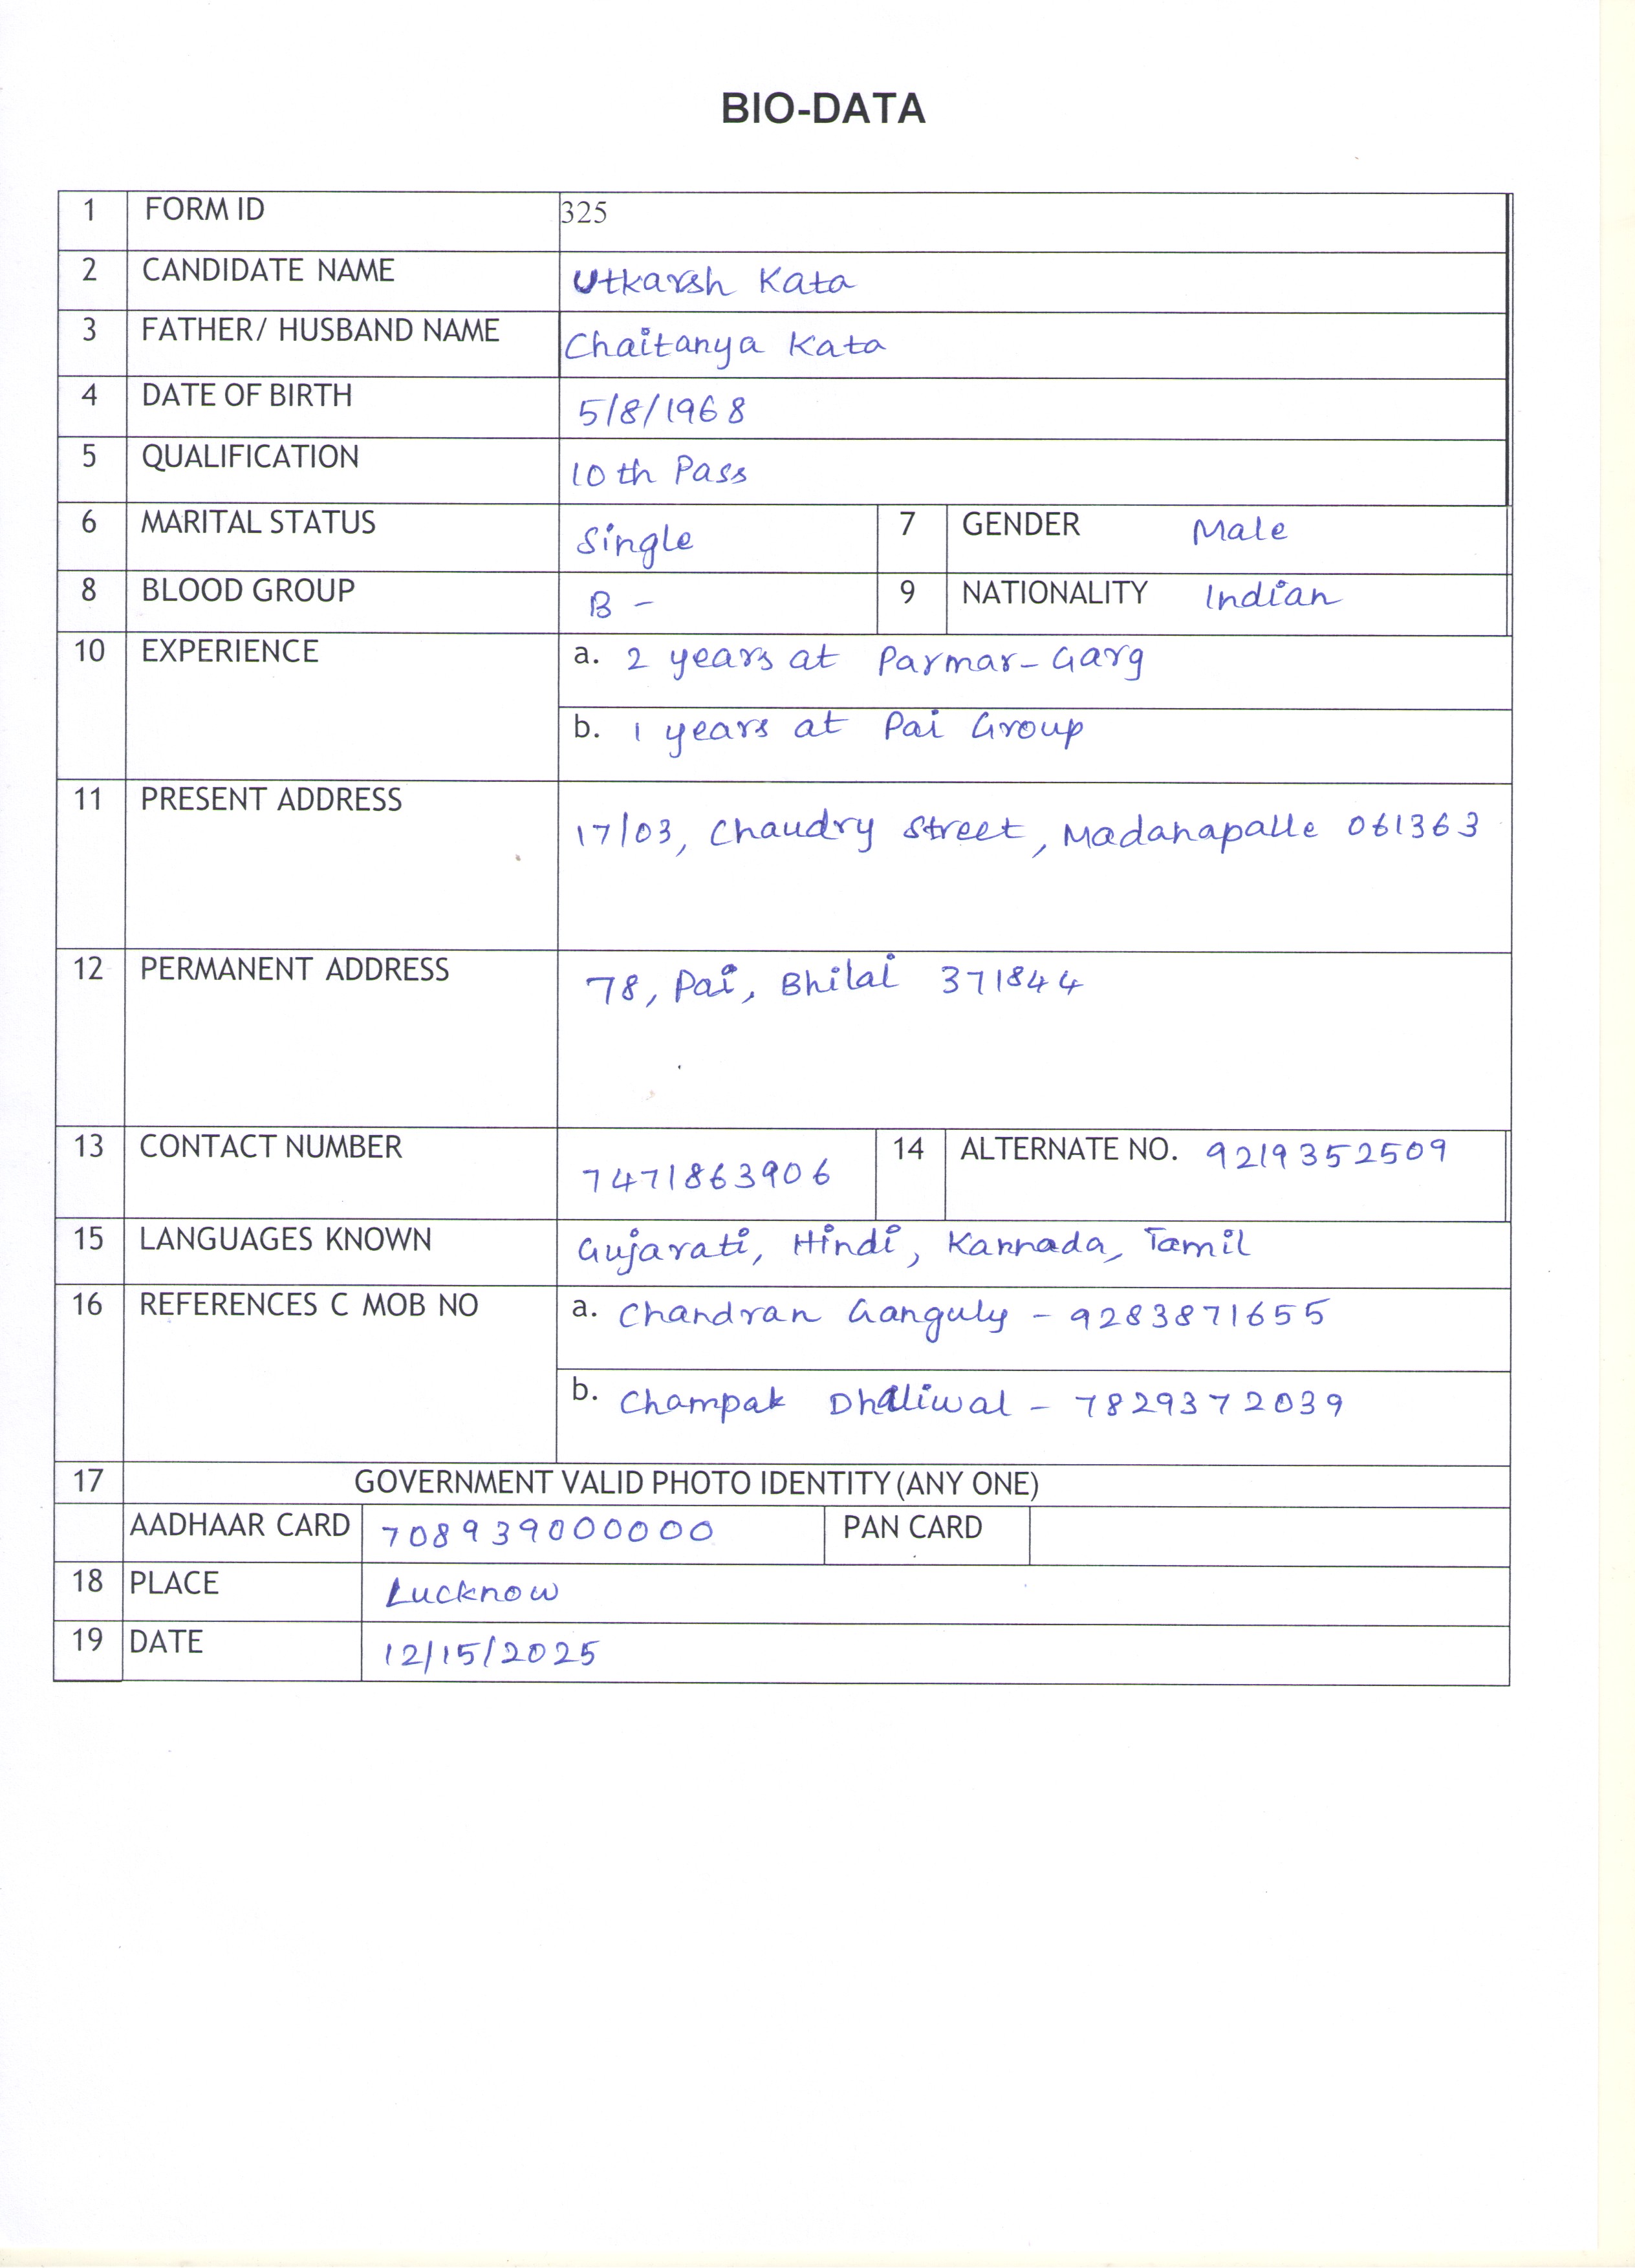 BIO-DATA
1 FORM ID 325
2 CANDIDATE NAME Utkarsh Kata
3 FATHER/ HUSBAND NAME Chaitanya Kata
4 DATE OF BIRTH 5/8/1968
5 QUALIFICATION 10th Pass
6 MARITAL STATUS Single 7 GENDER Male
8 BLOOD GROUP B - 9 NATIONALITY Indian
10 EXPERIENCE a. 2 years at Parmar-Garg
b. 1 years at Pai Group
11 PRESENT ADDRESS
17/03, Chaudry Street, Madanapalle 061363
12 PERMANENT ADDRESS 78, Pai, Bhilai 371844
13 CONTACT NUMBER 7471863906 14 ALTERNATE NO. 9219352509
15 LANGUAGES KNOWN Gujarati, Hindi, Kannada, Tamil
16 REFERENCES C MOB NO a. Chandran Ganguly - 9283871655
b. Champak Dhaliwal - 7829372039
17 GOVERNMENT VALID PHOTO IDENTITY (ANY ONE)
AADHAAR CARD 708939000000 PAN CARD
18 PLACE Lucknow
19 DATE 12/15/2025